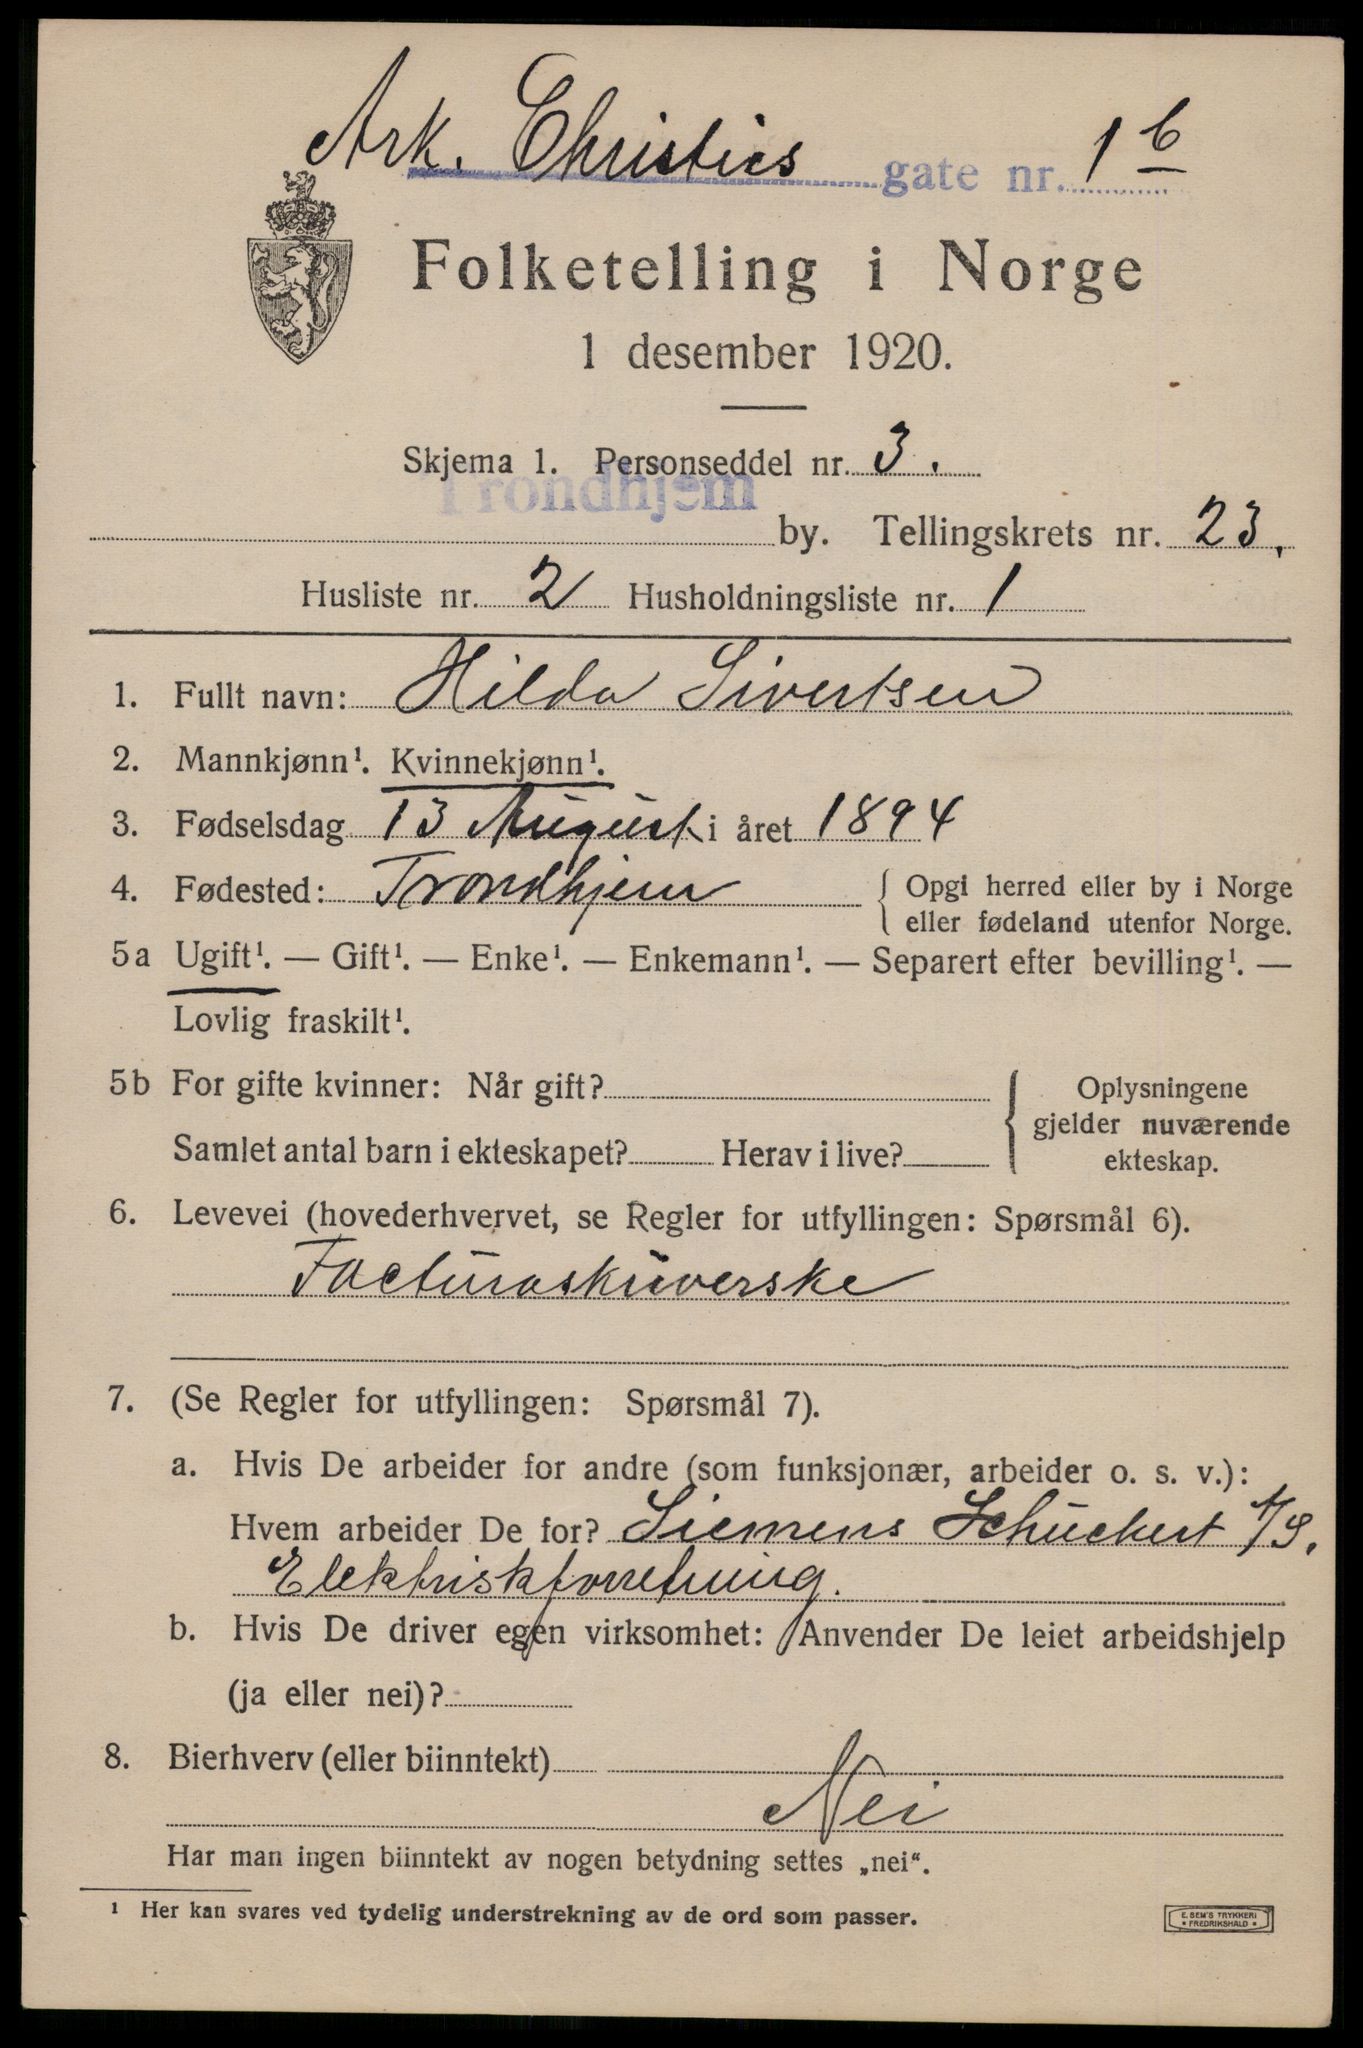 Ark. Christies gate nr. 1 b
Folketelling i Norge
1 desember 1920.
Skjema 1. Personseddel nr. 3.
Trondhjem
by. Tellingskrets nr. 23.
Husliste nr. 2 Husholdningsliste nr. 1
1. Fullt navn: Hilda Sivertsen
2. Mannkjønn¹. Kvinnekjønn¹.
3. Fødselsdag 13 August i året 1894
4. Fødested: Trondhjem { Opgi herred eller by i Norge
eller fødeland utenfor Norge.
5a Ugift¹. — Gift¹. — Enke¹. — Enkemann¹. — Separert efter bevilling¹. —
Lovlig fraskilt¹.
5b For gifte kvinner: Når gift? { Oplysningene
gjelder nuværende
Samlet antal barn i ekteskapet? Herav i live? ekteskap.
6. Levevei (hovederhvervet, se Regler for utfyllingen: Spørsmål 6).
Facturaskriverske
7. (Se Regler for utfyllingen: Spørsmål 7).
a. Hvis De arbeider for andre (som funksjonær, arbeider o. s. v.):
Hvem arbeider De for? Siemens Schuckert A/S.
Elektriskforretning.
b. Hvis De driver egen virksomhet: Anvender De leiet arbeidshjelp
(ja eller nei)?
8. Bierhverv (eller biinntekt)
Nei
Har man ingen biinntekt av nogen betydning settes „nei“.
¹ Her kan svares ved tydelig understrekning av de ord som passer.
E. SEM'S TRYKKERI
* FREDRIKSHALD *